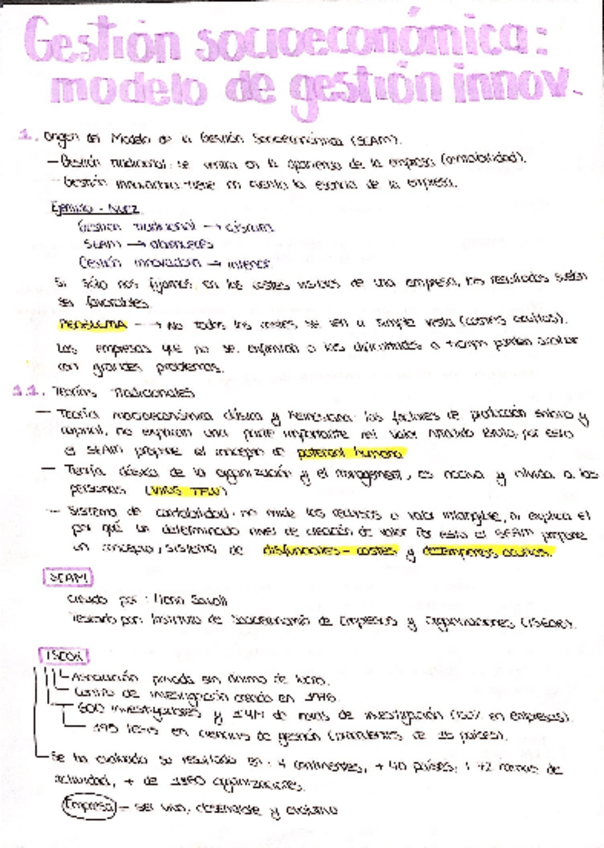 Gestión socioeconómica:
modelo de gestión innov.
1. Origen del Modelo de la Gestión Socioeconómica (SEAM).
- Gestión tradicional: se centra en la apariencia de la empresa (contabilidad).
- Gestión innovadora: tiene en cuenta la esencia de la empresa.
Ejemplo - Nuez
Gestión tradicional → cáscara
SEAM → 
Gestión innovadora → interior
Si sólo nos fijamos en los costes visibles de una empresa, los resultados suelen
ser favorables.
PROBLEMA → No todos los costes se ven a simple vista (costes ocultos).
Las empresas que no se enfrentan a las dificultades a tiempo pueden acabar
con grandes problemas.
1.1. Teorías Tradicionales
- Teoría macroeconómica clásica y keynesiana: los factores de producción, trabajo y
capital, no explican una parte importante del Valor Añadido Bruto, por esto
el SEAM propone el concepto de potencial humano
- Teoría clásica de la organización y el management, es nociva y nihilista a las
personas (VIRUS TFW)
- Sistema de contabilidad: no mide los recursos o valor intangible, ni explica el
por qué un determinado nivel de creación de valor. Por esto el SEAM propone
un concepto, sistema de disfunciones - costes y desempeños ocultos.
SEAM
Creado por: Henri Savall
Testado por: Instituto de Socioeconomía de Empresas y Organizaciones (ISEOR).
ISEOR
Asociación privada sin ánimo de lucro.
Centro de investigación creado en 1976.
600 investigadores y de horas de investigación en empresas).
195 tesis en ciencias de gestión de 15 países).
Se ha evaluado su resultado en: 4 continentes, + 40 países, 72 ramas de
actividad, + de organizaciones.
Empresa - ser vivo, y evolutivo